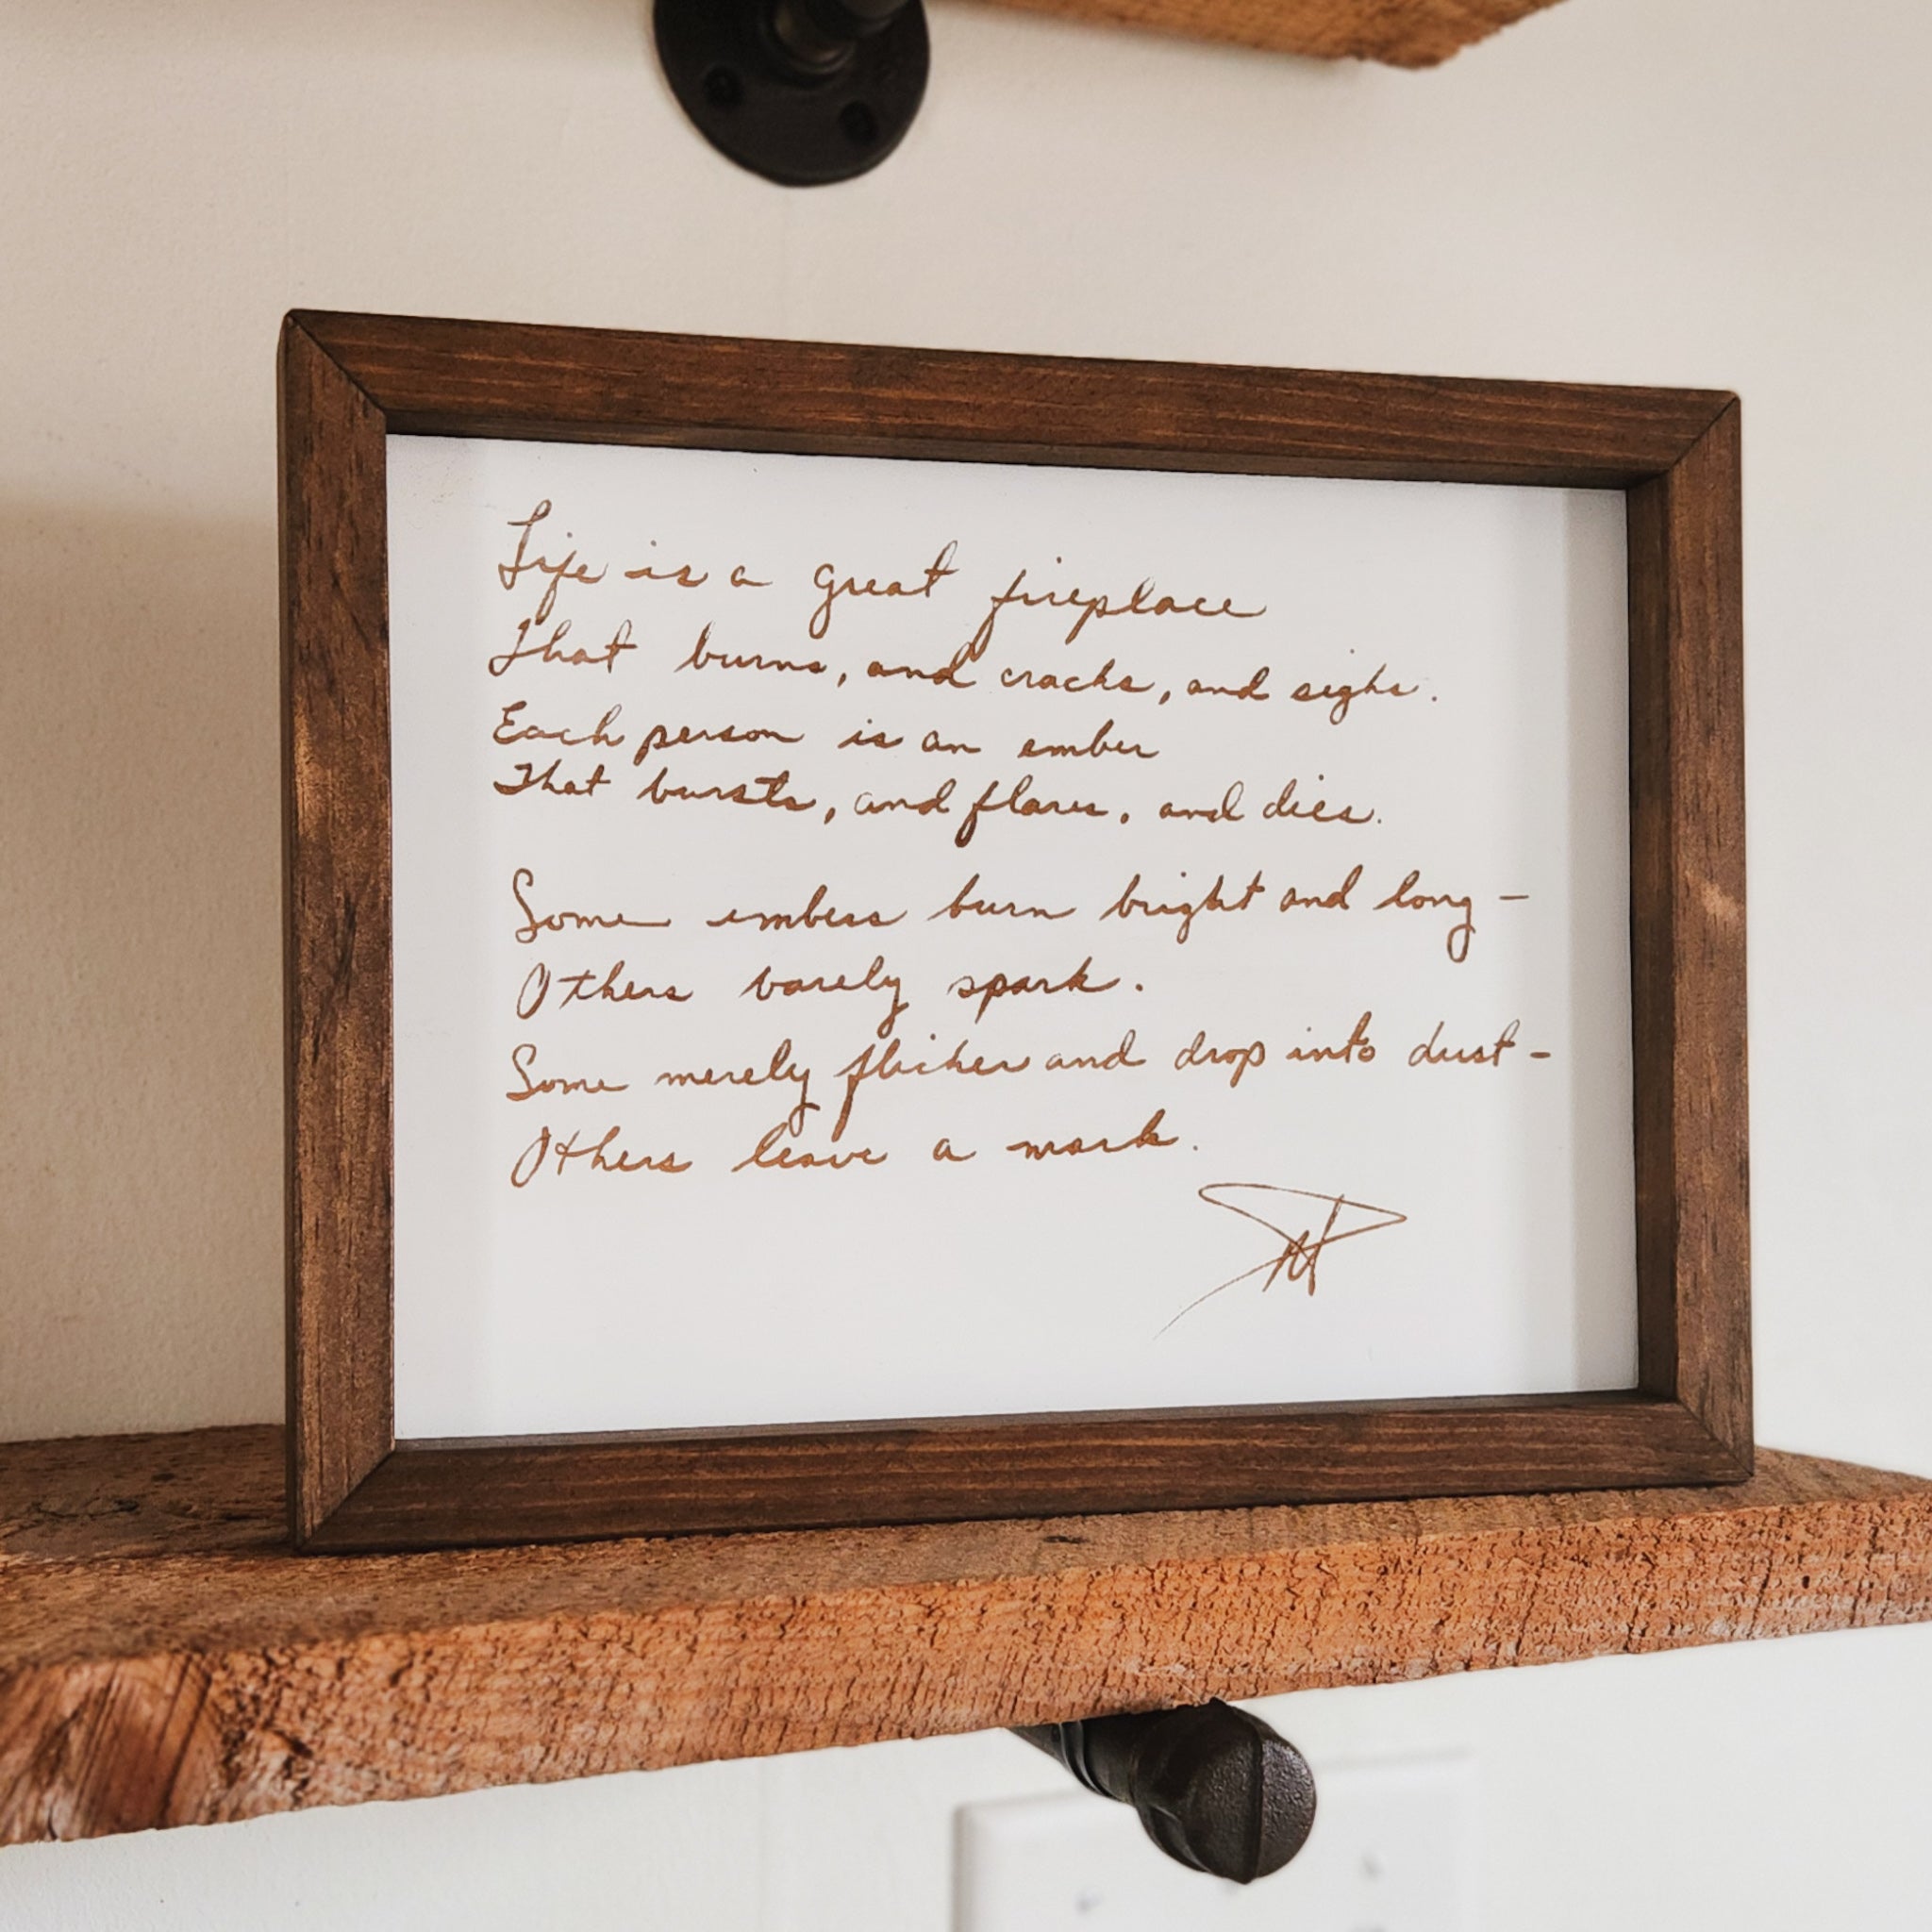 Life is a great fireplace
That burns, and cracks, and sighs.
Each person is an ember
That bursts, and flares, and dies.
Some embers burn bright and long –
Others barely spark.
Some merely flicker and drop into dust –
Others leave a mark.